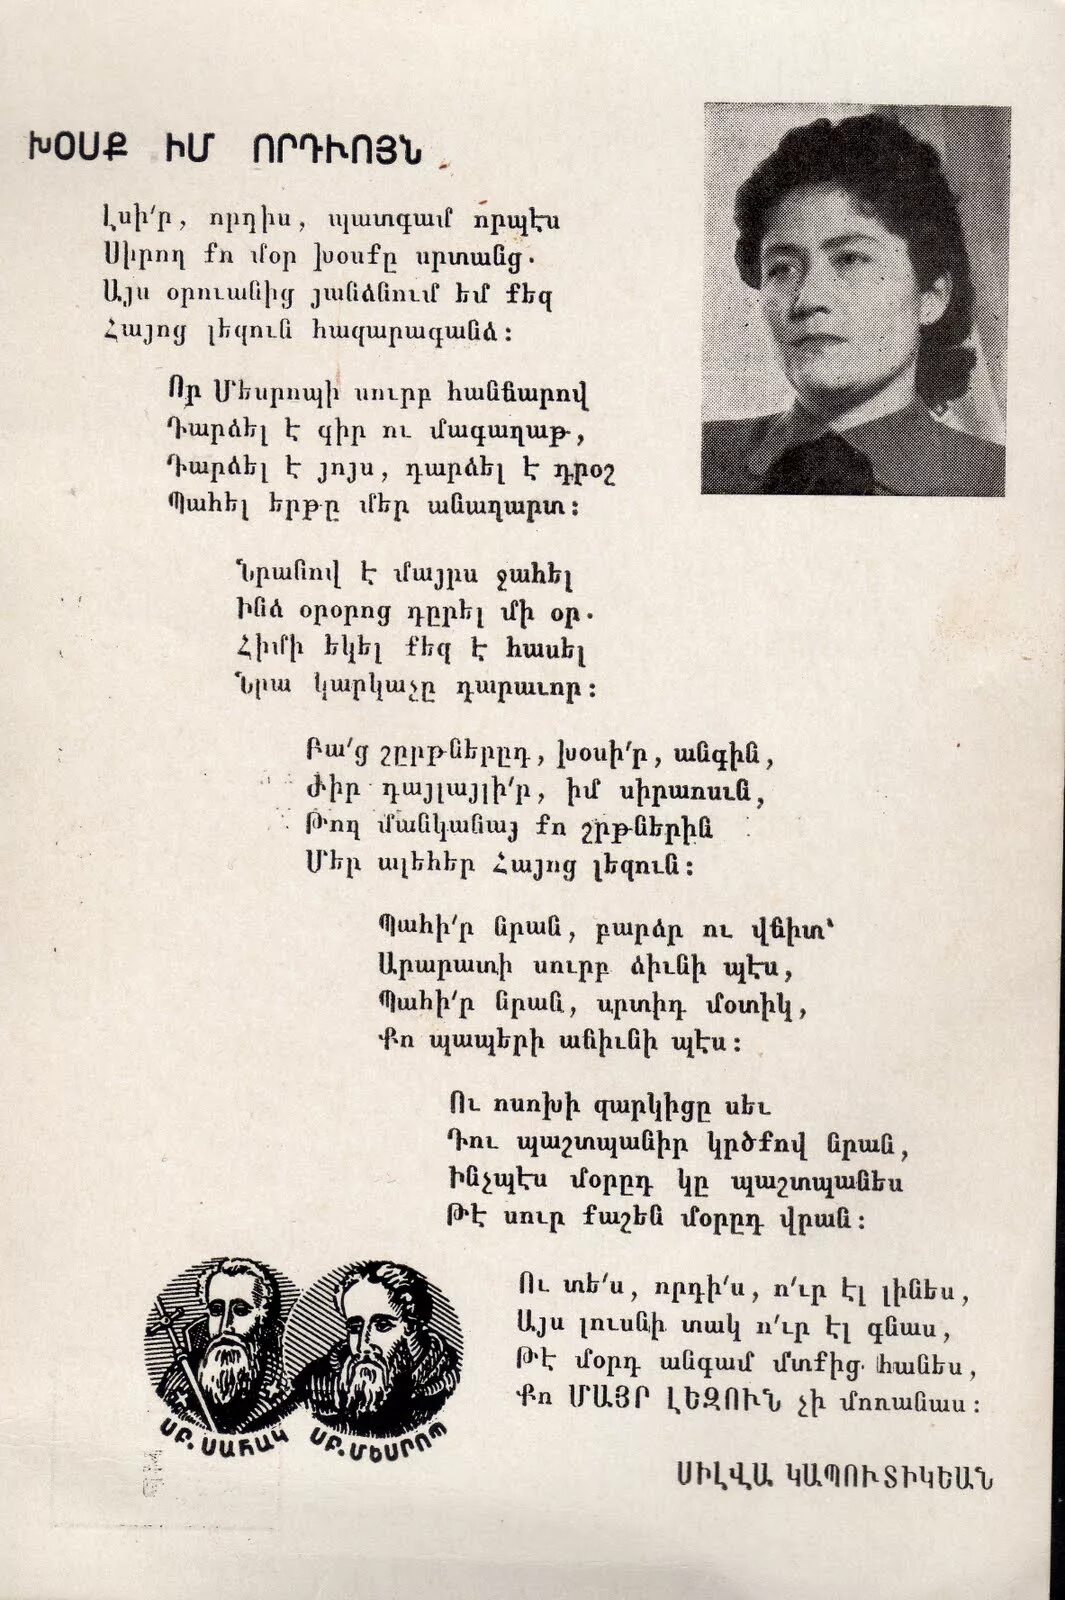 ԽՕՍՔ ԻՄ ՈՐԴՒՈՅՆ
Լսի՛ր, որդիս, պատգամ որպէս
Սիրող քո մօր խօսքը սրտանց.
Այս օրուանից յանձնում եմ քեզ
Հայոց լեզուն հազարագանձ։
Որ Մեսրոպի սուրբ հանճարով
Դարձել է գիր ու մագաղաթ,
Դարձել է յոյս, դարձել է դրօշ
Պահել երթը մեր անաղարտ։
Նրանով է մայրս ջահել
Ինձ օրօրոց դըրել մի օր.
Հիմի եկել քեզ է հասել
Նրա կարկաչը դարաւոր։
Բա՛ց շըրթներըդ, խօսի՛ր, անգին,
Ժիր դայլայլի՛ր, իմ սիրասուն,
Թող մանկանայ քո շրթներին
Մեր ալեհեր Հայոց լեզուն։
Պահի՛ր նրան, բարձր ու վճիտ՝
Արարատի սուրբ ձիւնի պէս,
Պահի՛ր նրան, սրտիդ մօտիկ,
Քո պապերի անիւնի պէս։
Ու ոսոխի զարկիցը սեւ
Դու պաշտպանիր կրծքով նրան,
Ինչպէս մօրըդ կը պաշտպանես
Թէ սուր քաշեն մօրըդ վրան։
Ու տե՛ս, որդի՛ս, ո՛ւր էլ լինես,
Այս լուսնի տակ ո՛ւր էլ գնաս,
Թէ մօրդ անգամ մտքից հանես,
Քո ՄԱՅՐ ԼԵԶՈՒՆ չի մոռանաս։
ՍԲ. ՍԱՀԱԿ ՍԲ. ՄԵՍՐՈՊ
ՍԻԼՎԱ ԿԱՊՈՒՏԻԿԵԱՆ